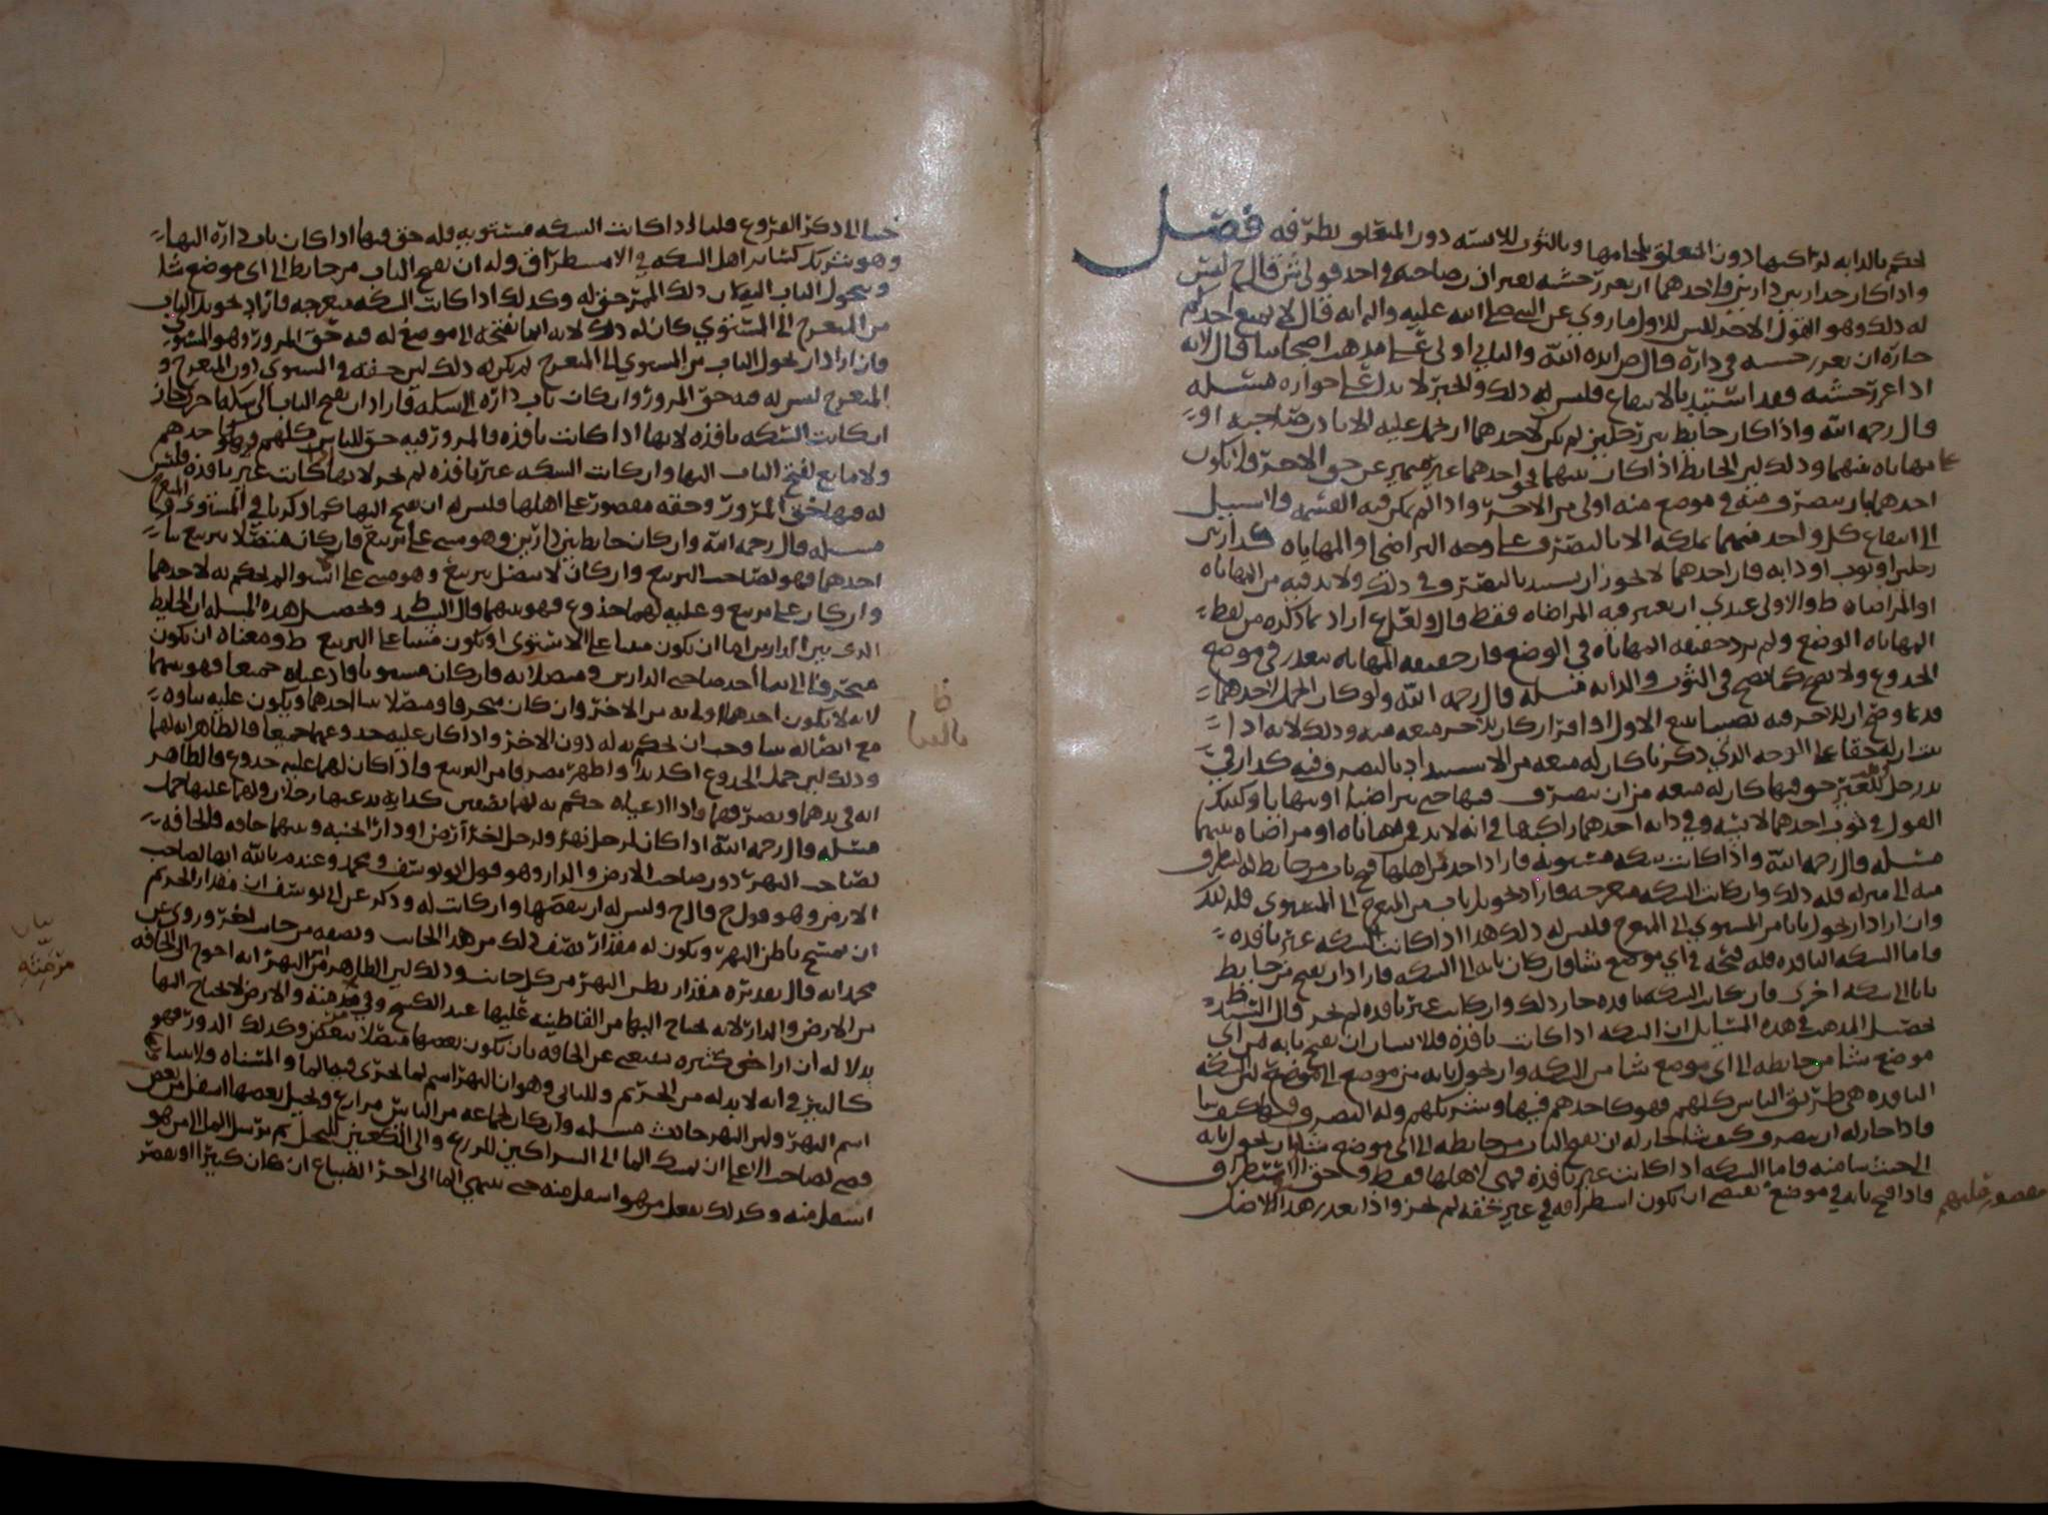 يحكم بالدابه لراكبها دون المتعلق بلجامها وبالثوب للابسه دون المتعلق بطرفه فصل
واذا كان جدار بين دارين فلاحدهما ان يغرز خشبه بغير اذن صاحبه في احد قولي ش قال ح ليس
له ذلك وهو القول الاخير للش للاول ما روي عن النبي صلى الله عليه واله انه قال لا يمنع احدكم
جاره ان يغرز خشبه في داره قال ص ايده الله والثاني اولى على مذهب اصحابنا قال لانه
اذا غرز خشبه فقد استبد بالانتفاع فليس له ذلك والخبر لا يدل على جواره مسئله
قال رحمه الله واذا كان حايط بين رجلين لم يكن لاحدهما ان يحمل عليه الا باذن صاحبه او
مهاياه بينهما وذلك لان الحايط اذا كان بينهما فحق احدهما غير متميز عن حق الاخر فلا يكون
احدهما بان يتصرف منه في موضع منه اولى من الاخر واذا لم يمكن فيه القسمه فلا سبيل
الى انتفاع كل واحد منهما بملكه الا بالتصرف على وجه التراضي او المهاياه كدار بين
رجلين او ثوب او دابه فان احدهما لا يجوز ان يستبد بالتصرف في ذلك ولا بد فيه من المهاياه
او المراضاه ط والاولى عندي ان يعتبر فيه المراضاه فقط قال ولعل ع اراد بما ذكره من لفظ
المهاياه الوضع ولم يرد حقيقه المهاياه في الوضع فان حقيقه المهاياه يتعذر في موضع
الجذوع ولا يصح كما يصح في الثوب والدابه مسئله قال رحمه الله ولو كان الحمل لاحدهما
قديما وصح ان للاخر فيه نصيبا ببيع الاول او اقراره كان للاخر منعه منه وذلك لانه اذا
ثبت ان له حقا على الوجه الذي ذكرنا كان له منعه من الاستبداد بالتصرف فيه كدار في
يد رجل للغير حق فيها كان له منعه من ان يتصرف فيها حتى يتراضيا او يتهايا وكذلك
القول في ثوب احدهما لابسه وفي دابه احدهما راكبها في انه لا بد في مهاياه او مراضاه بينهما
مسئله قال رحمه الله واذا كانت سكه مستويه فاراد احد من اهلها فتح باب من حايط له ليطرق
منه الى منزله فله ذلك وان كانت السكه منعرجه فاراد تحويل باب من المنعرج الى المستوي فله ذلك
وان اراد ان يحول بابا من المستوي الى المنعرج فليس له ذلك هذا اذا كانت السكه غير نافذه
فاما السكه النافذه فله فتحه في اي موضع شا فان كان بابه الى السكه فاراد ان يفتح من حايط
بابا الى سكه اخرى فان كانت السكه نافذه جاز ذلك وان كانت غير نافذه لم يجز قال السيد ط
تحصيل المذهب في هذه المسايل ان السكه اذا كانت نافذه فللانسان ان يفتح بابه من اي
موضع شا من حايطه الى اي موضع شا من السكه وان يحول بابه من موضع الى موضع لان السكه
النافذه هي طريق الناس كلهم فهو كاحدهم فيها وشريكهم وله التصرف فيها كيف شا
فاذا جاز له ان يتصرف كيف شا جاز له ان يفتح الباب من حايطه الى اي موضع شا وان يحول بابه
الى حيث شا منه فاما السكه اذا كانت غير نافذه فهي لاهلها فقط وحق الاستطراق
مقصور عليهم فاذا فتح بابه في موضع يقتضي ان يكون استطراقه في غير حقه لم يجز واذا تقرر هذا الاصل
جينا الى ذكر الفروع قلنا اذا كانت السكه مستويه فله حق فيها اذا كان باب داره اليها
وهو شريك كساير اهل السكه في الاستطراق وله ان يفتح الباب من حايط الى اي موضع شا
ويحول الباب اليه لان ذلك الممر حق له وكذلك اذا كانت السكه منعرجه فاراد تحويل الباب
من المنعرج الى المستوي كان له ذلك لانه انما يفتحه الى موضع له فيه حق المرور وهو المستوي
فان اراد ان يحول الباب من المستوي الى المنعرج لم يكن له ذلك لان حقه في المستوي دون المنعرج و
المنعرج ليس له فيه حق المرور وان كان باب داره الى سكه فاراد ان يفتح الباب الى سكه اخرى جاز
ان كانت السكه نافذه لانها اذا كانت نافذه فالمرور فيه حق للناس كلهم وهو كاحدهم
ولا مانع لفتح الباب اليها وان كانت السكه غير نافذه لم يجز لانها اذا كانت غير نافذه فليس
له فيها حق المرور وحقه مقصور على اهلها فليس له ان يفتح اليها كما ذكرنا في المستوي والمنعرج
مسئله قال رحمه الله وان كان حايط بين دارين وهو مبني على تربيع فان كان متصلا بتربيع بنا
احدهما فهو لصاحب التربيع وان كان لا يتصل بتربيع وهو مبني على استوا لم يحكم به لاحدهما
وان كان على تربيع وعليه لهما جذوع فهو بينهما قال السيد ط وتحصيل هذه المسئله ان الحايط
الذي بين الدارين اما ان يكون مبنيا على الاستوى او يكون مبنيا على التربيع ط ومعناه ان يكون
منحرفا الى بنا احد صاحبي الدارين ومتصلا به فان كان مستويا فادعياه جميعا فهو بينهما
لانه لا يكون احدهما اولى به من الاخر وان كان منحرفا ومتصلا ببنا احدهما ويكون عليه بناوه
مع اتصاله ببنا وجب ان يحكم به له دون الاخر واذا كان عليه جذوعهما جميعا فالظاهر انه لهما
وذلك لان حمل الجذوع اكد يدا واظهر تصرفا من التربيع واذا كان لهما عليه جذوع فالظاهر
انه في يدهما وتصرفهما واذا ادعياه حكم به لهما نصفين كدابه يدعيها رجلان ولهما عليها حمل
مسئله قال رحمه الله اذا كان لرجل نهر ولرجل اخر ارض او دار الى جنبه وبينهما حافه فالحافه
لصاحب النهر دون صاحب الارض والدار وهو قول ابو يوسف ومحمد وعنده م بالله انها لصاحب
الارض وهو قول ح قال ح وليس له ان ينقضها وان كانت له وذكر عن ابي يوسف ان مقدار الحريم
ان يمسح باطن النهر ويكون له مقدار نصف ذلك من هذا الجانب ونصفه من جانب اخر وروي عن
محمد انه قال بقدره مقدار بطن النهر من كل جانب وذلك لان الظاهر من النهر انه احوج الى الحافه
من الارض والدار لانه يحتاج اليها من القا طينه عليها عند الكسح وفي مرمته والارض لا تحتاج اليها
بدلاله ان اراضي كثيره يستغنى عن الحافه بان يكون بعضها متصلا ببعض وكذلك الدور فهو
كالبير في انه لا بد له من الحريم وللثاني وهو ان النهر اسم لما يجري فيه الما والمسناه ولا يتناول
اسم النهر ولان النهر حادث مسئله وان كان لجماعه من الناس مزارع ونخيل بعضها اسفل من بعض
قضي لصاحب الاعلى ان يمسك الما الى الشراكين للزرع والى الكعبين للنخل ثم يرسل الما الى من هو
اسفل منه وكذلك يفعل من هو اسفل منه حتى ينتهي الما الى اخر الضياع ان كان كثيرا او يقصر
بيان
مرمته